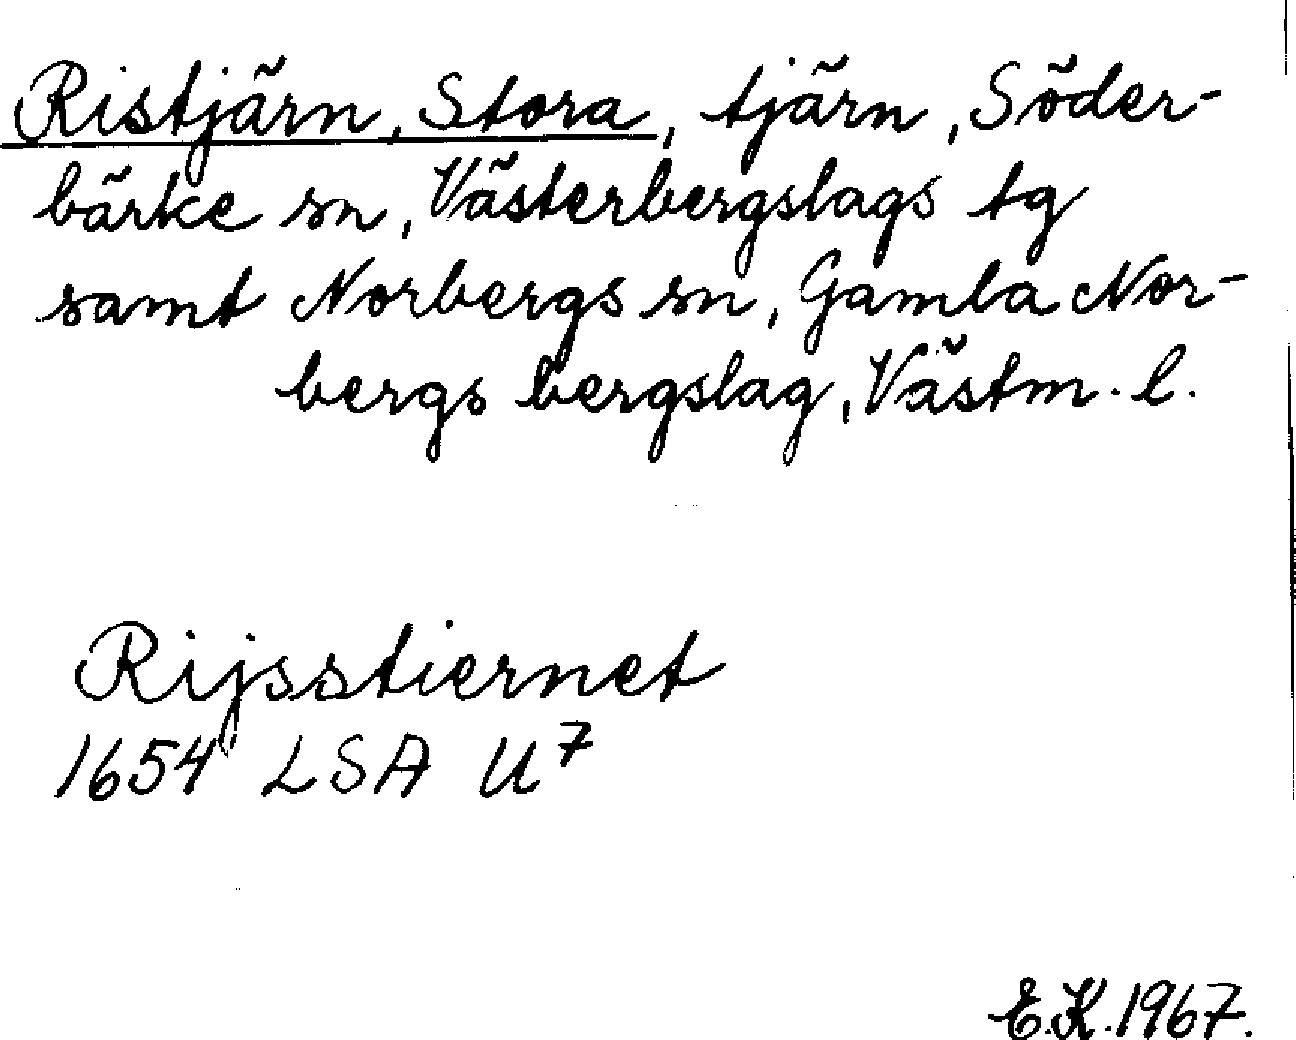 Ristjärn, Stora, tjärn, Söder-
bärke sn, Västerbergslags tg
samt Norbergs sn, Gamla Nor-
bergs bergslag, Västm. l.
Rijsstiernet
1654 LSA U⁷
E.K. 1967.